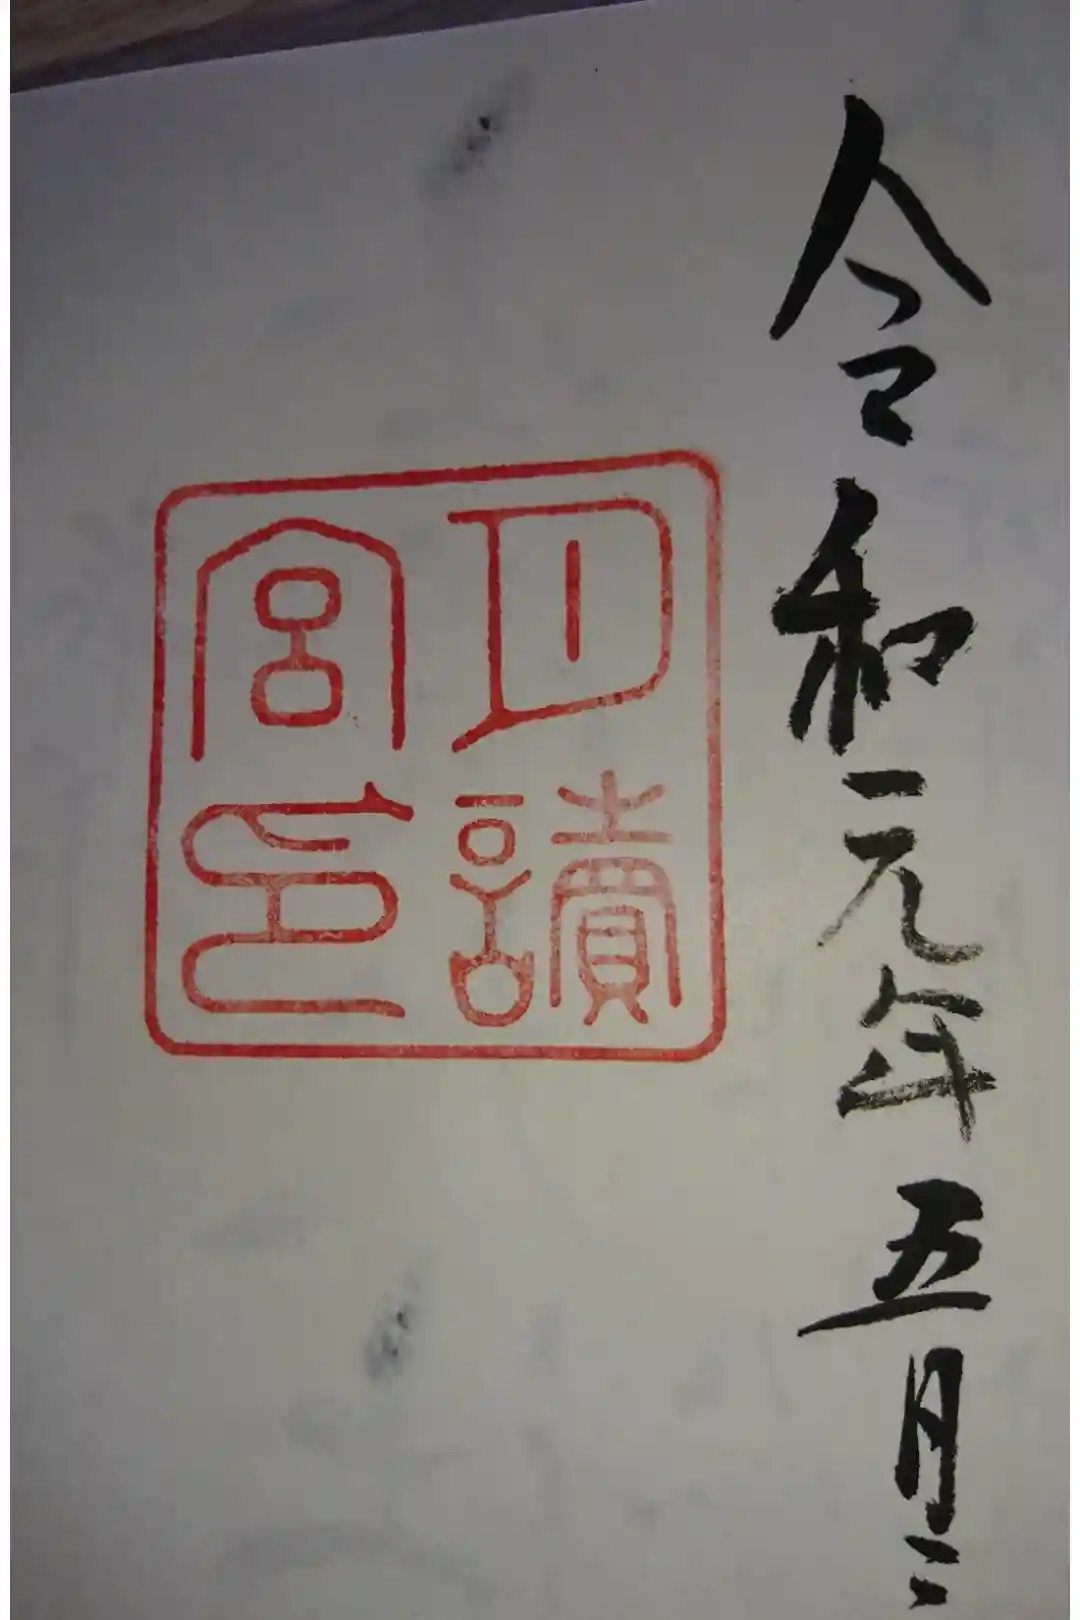 令和元年五月二
月讀
宮印